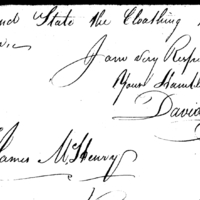 and State the Cloathing
I am Very Respe
Your Humbl
David
James McHenry